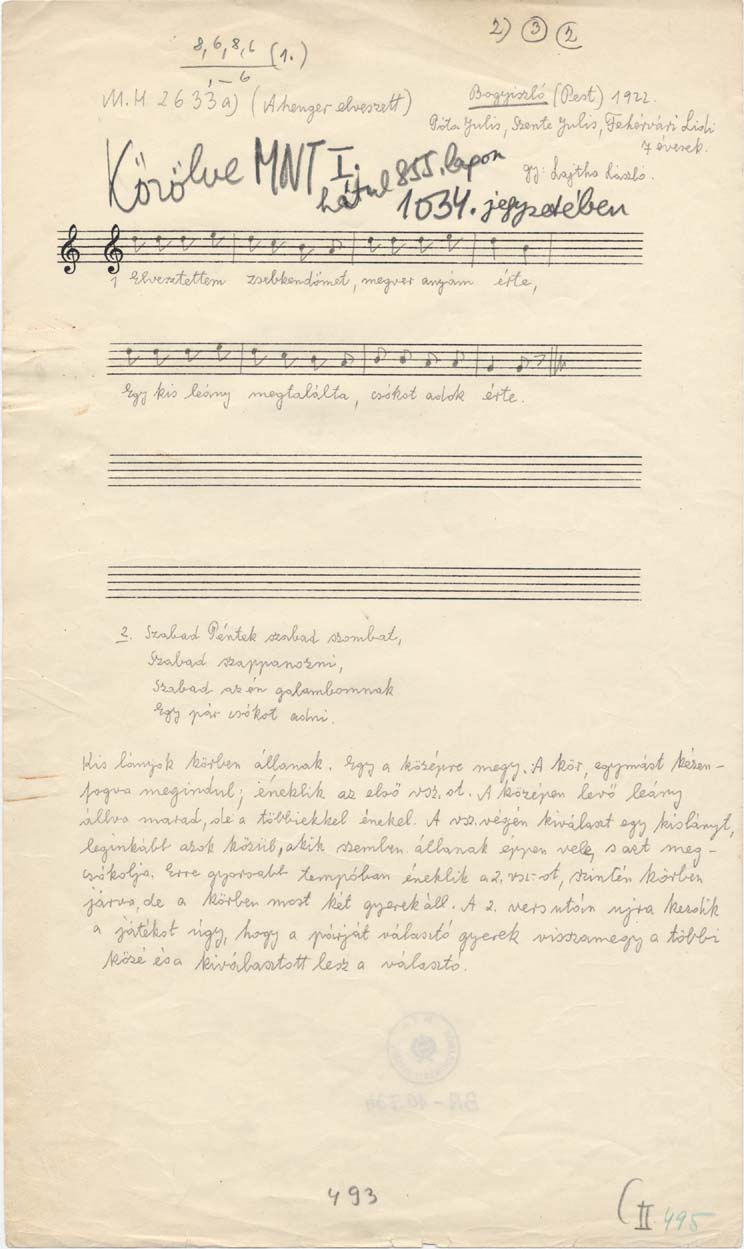 2) 3 2
8, 6, 8, 6 (1.)
, – 6
M.H 2633a) (A henger elveszett)
Bogyiszló (Pest) 1922.
Póta Julis, Szente Julis, Fehérvári Lidi
7 évesek.
gy: Lajtha László.
Közölve MNT I.
hátul 855. lapon
1034. jegyzetében
1 Elvesztettem zsebkendőmet, megver anyám érte,
Egy kis leány megtalálta, csókot adok érte.
2. Szabad Péntek szabad szombat,
Szabad szappanozni,
Szabad az én galambomnak
Egy pár csókot adni.
Kis lányok körben állanak. Egy a középre megy. A kör, egymást kézen-
fogva megindul; éneklik az első vsz.ot. A középen levő leány
állva marad, de a többiekkel énekel. A vsz. végén kiválaszt egy kislányt,
leginkább azok közül, akik szemben állanak éppen vele, s azt meg-
csókolja. Erre gyorsabb tempóban éneklik a 2. vsz-ot, szintén körben
járva, de a körben most két gyerek áll. A 2. vers után ujra kezdik
a játékot úgy, hogy a párját választó gyerek visszamegy a többi
közé és a kiválasztott lesz a választó.
BR-10734
493
II 495